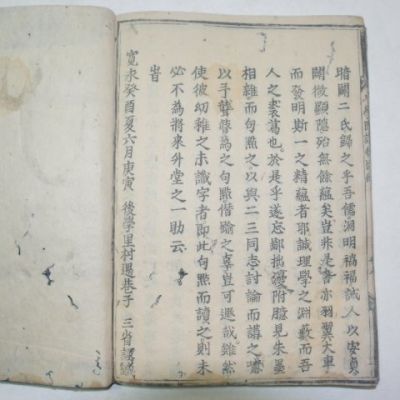 暗闢二氏歸之乎吾儒溯明禍福誠人以安貞
闡微顯隱殆無餘蘊矣豈非是書亦羽翼大車
而發明斯一之精蘊者耶誠理學之淵藪而吾
人之裘葛也於是乎遂忘鄙拙攙附臆見朱墨
相雜而句點之以與二三同志討論而講之嗟
以手聾瞽為之句點僭踰之辜豈可遁哉雖然
使彼幼稚之未識字者即此句點而讀之則未
必不為將來外堂之一助云
旹
寬永癸酉夏六月庚寅 後學里村遇巷子 三省